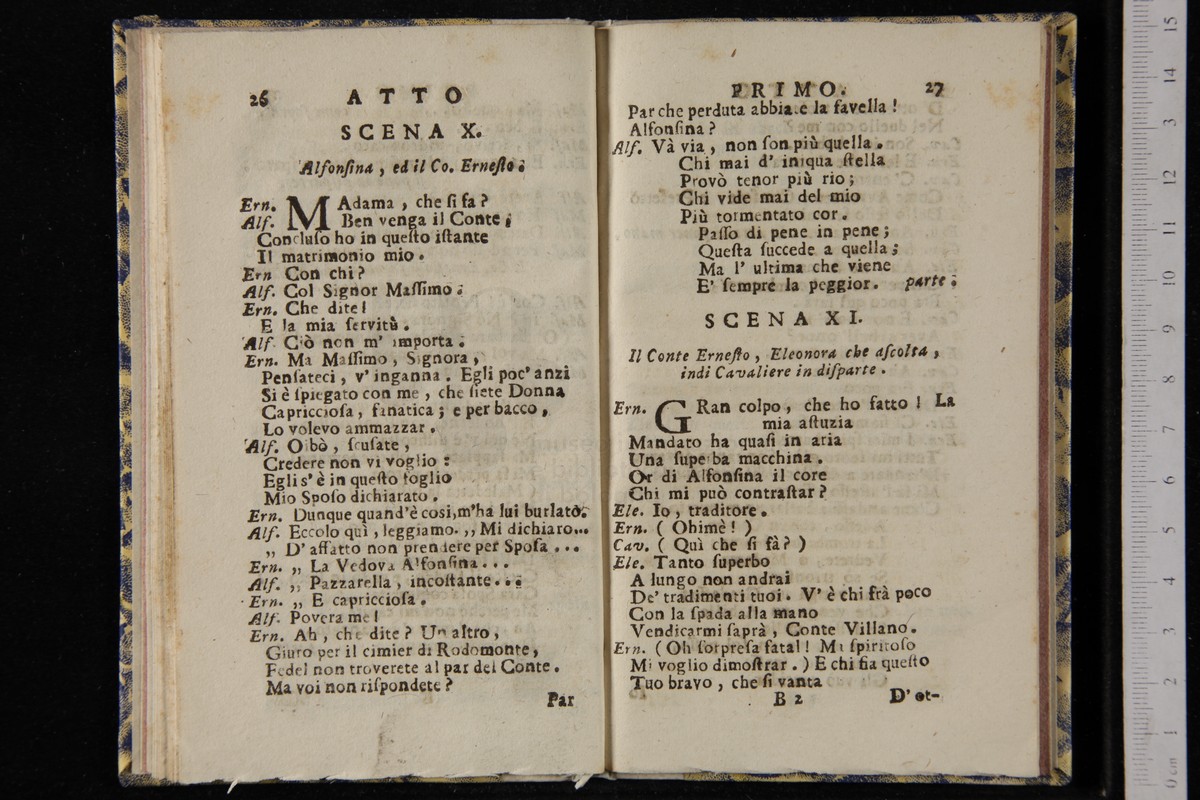 26 ATTO
SCENA X.
Alfonſina, ed il Co. Erneſto.
Ern. MAdama, che ſi fa?
Alf. Ben venga il Conte;
Concluſo ho in queſto iſtante
Il matrimonio mio.
Ern Con chi?
Alf. Col Signor Maſſimo.
Ern. Che dite!
E la mia ſervitù.
Alf. Ciò non m' importa.
Ern. Ma Maſſimo, Signora,
Penſateci, v' inganna. Egli poc' anzi
Si è ſpiegato con me, che ſiete Donna
Capriccioſa, fanatica; e per bacco,
Lo volevo ammazzar.
Alf. Oibò, ſcuſate,
Credere non vi voglio:
Egli s' è in queſto foglio
Mio Spoſo dichiarato.
Ern. Dunque quand'è cosi, m'ha lui burlato.
Alf. Eccolo quì, leggiamo. ,, Mi dichiaro...
,, D' affatto non prendere per Spoſa ...
Ern. ,, La Vedova Alfonſina...
Alf. ,, Pazzarella, incoſtante...
Ern. ,, E capriccioſa.
Alf. Povera me!
Ern. Ah, che dite? Un altro,
Giuro per il cimier di Rodomonte,
Fedel non troverete al par del Conte.
Ma voi non riſpondete?
Par
PRIMO. 27
Par che perduta abbiate la favella!
Alfonſina?
Alf. Và via, non ſon più quella.
Chi mai d' iniqua ſtella
Provò tenor più rio;
Chi vide mai del mio
Più tormentato cor.
Paſſo di pene in pene;
Queſta ſuccede a quella;
Ma l' ultima che viene
E' ſempre la peggior. parte.
SCENA XI.
Il Conte Erneſto, Eleonora che aſcolta,
indi Cavaliere in diſparte.
Ern. GRan colpo, che ho fatto! La
mia aſtuzia
Mandato ha quaſi in aria
Una ſuperba macchina.
Or di Alfonſina il core
Chi mi può contraſtar?
Ele. Io, traditore.
Ern. ( Ohimè! )
Cav. ( Quì che ſi fà? )
Ele. Tanto ſuperbo
A lungo non andrai
De' tradimenti tuoi. V' è chi frà poco
Con la ſpada alla mano
Vendicarmi ſaprà, Conte Villano.
Ern. ( Oh ſorpreſa fatal! Mi ſpiritoſo
Mi voglio dimoſtrar. ) E chi fia queſto
Tuo bravo, che ſi vanta
B 2 D' ot-
15
14
13
12
11
10
9
8
7
6
5
4
3
2
1
0 cm